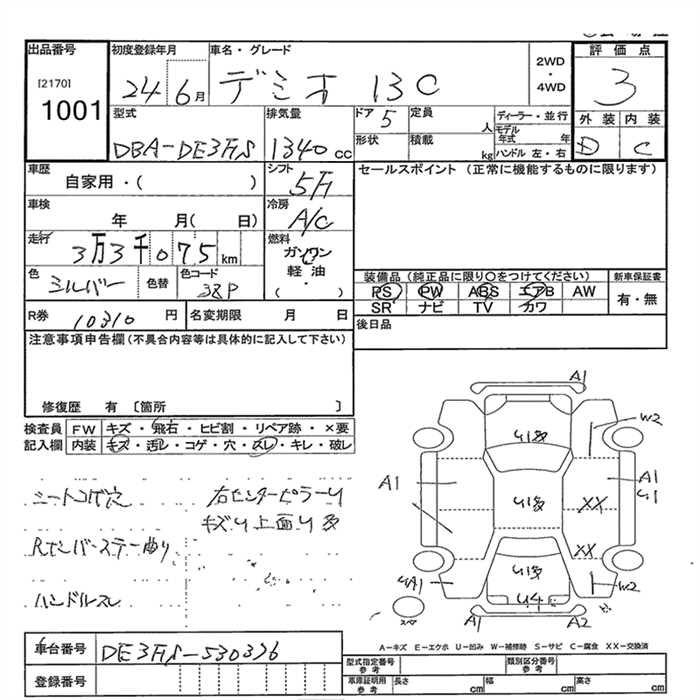 出品番号 初度登録年月 車名・グレード 2WD・4WD 評価点
[2170]
1001
24 6月 デミオ 13C 3
型式 排気量 ドア 5 定員 人 ディーラー・並行 外装 内装
DBA-DE3FS 1340 cc 形状 積載 kg モデル年式 年 ハンドル 左・右 D C
車歴 自家用・( ) シフト 5F セールスポイント (正常に機能するものに限ります)
車検 年 月( 日) 冷房 A/C
走行 3万3千075 km 燃料 ガソリン
軽油・
( )
色 シルバー 色替 色コード 38P 装備品(純正品に限り〇をつけてください) 新車保証書
PS PW ABS エアB AW 有・無
SR ナビ TV カワ
R券 10310 円 名変期限 月 日 後日品
注意事項申告欄(不具合内容等は具体的に記入して下さい)
修復歴 有 〔箇所 〕
検査員 FW キズ・飛石・ヒビ割・リペア跡・×要
記入欄 内装 キズ・汚レ・コゲ・穴・スレ・キレ・破レ
シートコゲ穴 右センターピラーU
キズU上面U多
Rバンパーステー曲り
ハンドルスレ
A1
W2
U1多
A1 A1
U1
U1多 XX
XX
U1多
UA1 W2
U4
A1 A2
スペア
A－キズ E－エクボ U－凹み W－補修跡 S－サビ C－腐食 XX－交換済
車台番号 DE3FS-530336
登録番号
型式指定番号 参考 類別区分番号 参考
車庫証明用 参考 長さ cm 幅 cm 高さ cm